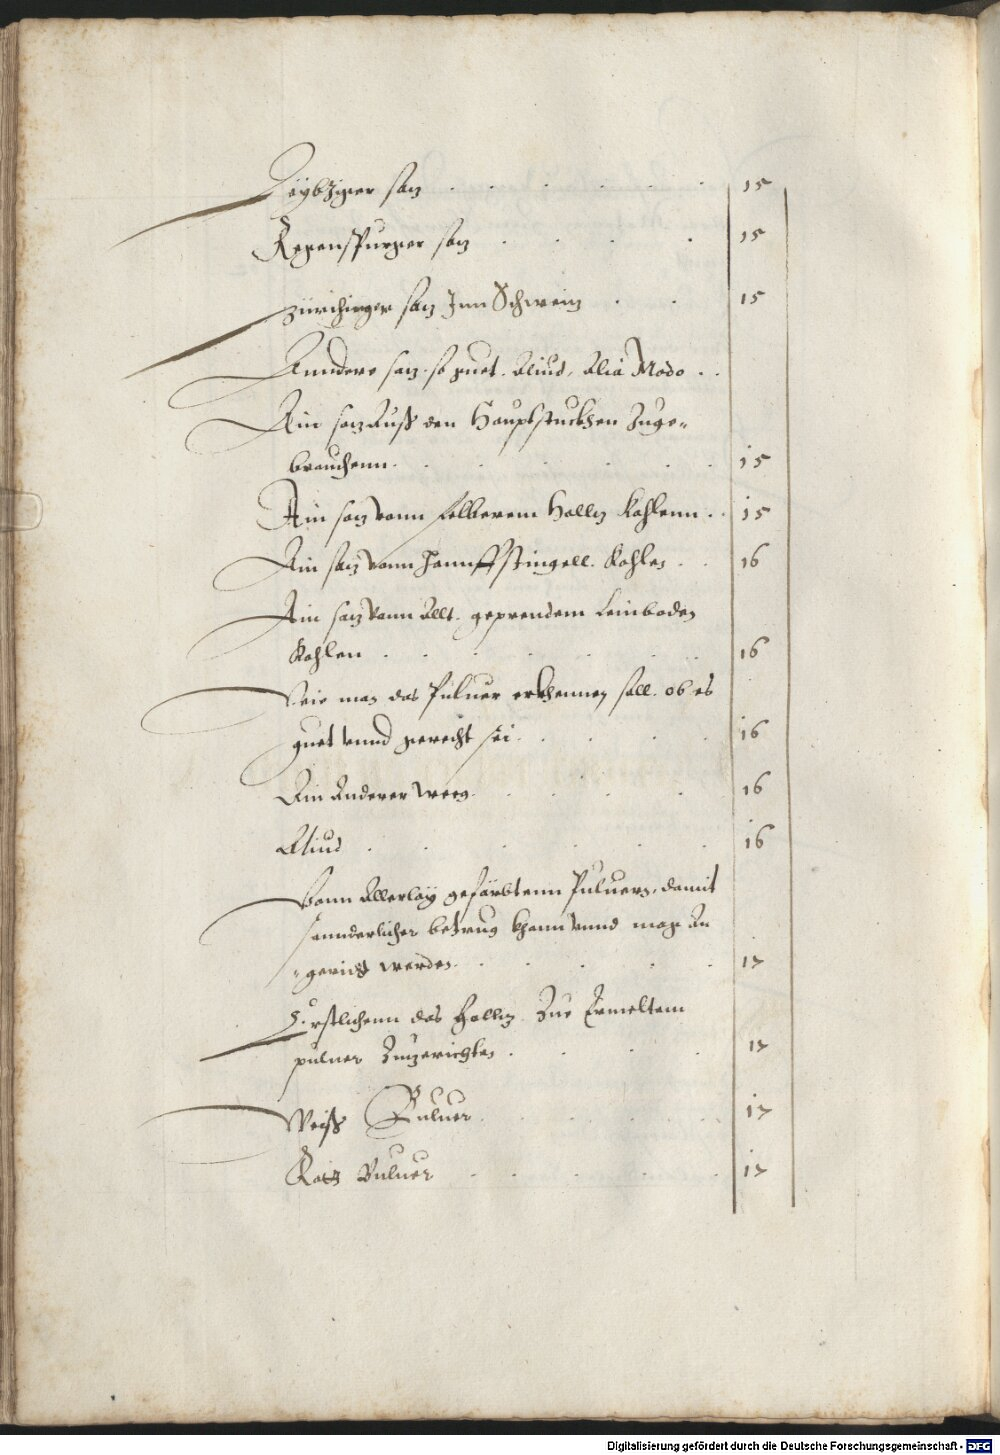 Leybziger satz . . . . . . 15
Regenspurger satz . . . . 15
Zürichinger satz Inn Schweitz . . 15
Anndere satz. so guet. Aliud, Alia Modo . .
Ain satz Auß den Hauptstuckhen Zuge-
brauchenn . . . . . . 15
Ain satz vonn felberem Holtz Kohlenn . . 15
Ain satz vonn Hannffstingell. Kohlen . . 16
Ain satz vonn Allt. geprendem Leinboden
Kohlen . . . . . . 16
Wie man das Puluer erkhennen soll. ob es
guet vnnd gerecht sei . . . . 16
Ain Anderer weeg . . . . 16
Aliud . . . . . . 16
Vonn Allerlay gefärbtenn Puluern, damit
sonnderlicher betrug khann vnnd mag An
-gericht werden . . . . . 17
Erstlichenn das Holtz Zue Ermeltem
puluer Zuzerichten . . . . 17
Weiß Puluer . . . . . 17
Rott Puluer . . . . . 17
Digitalisierung gefördert durch die Deutsche Forschungsgemeinschaft - DFG